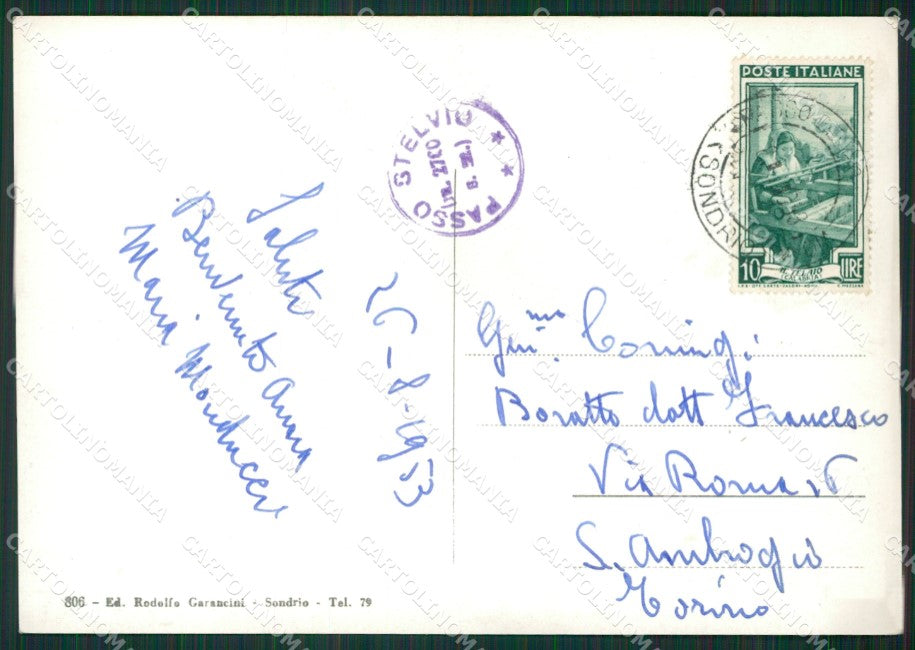 POSTE ITALIANE
10 LIRE
IL TELAIO
PASSO STELVIO
(m. 2760 s. m.)
(SONDRIO)
Saluti
Benvenuto Anna
Maria
26-8-1953
Gen.mo Coniugi
Boratto dott Francesco
Via Roma
S. Ambrogio
Torino
806 - Ed. Rodolfo Garancini - Sondrio - Tel. 79
CARTOLINOMANIA